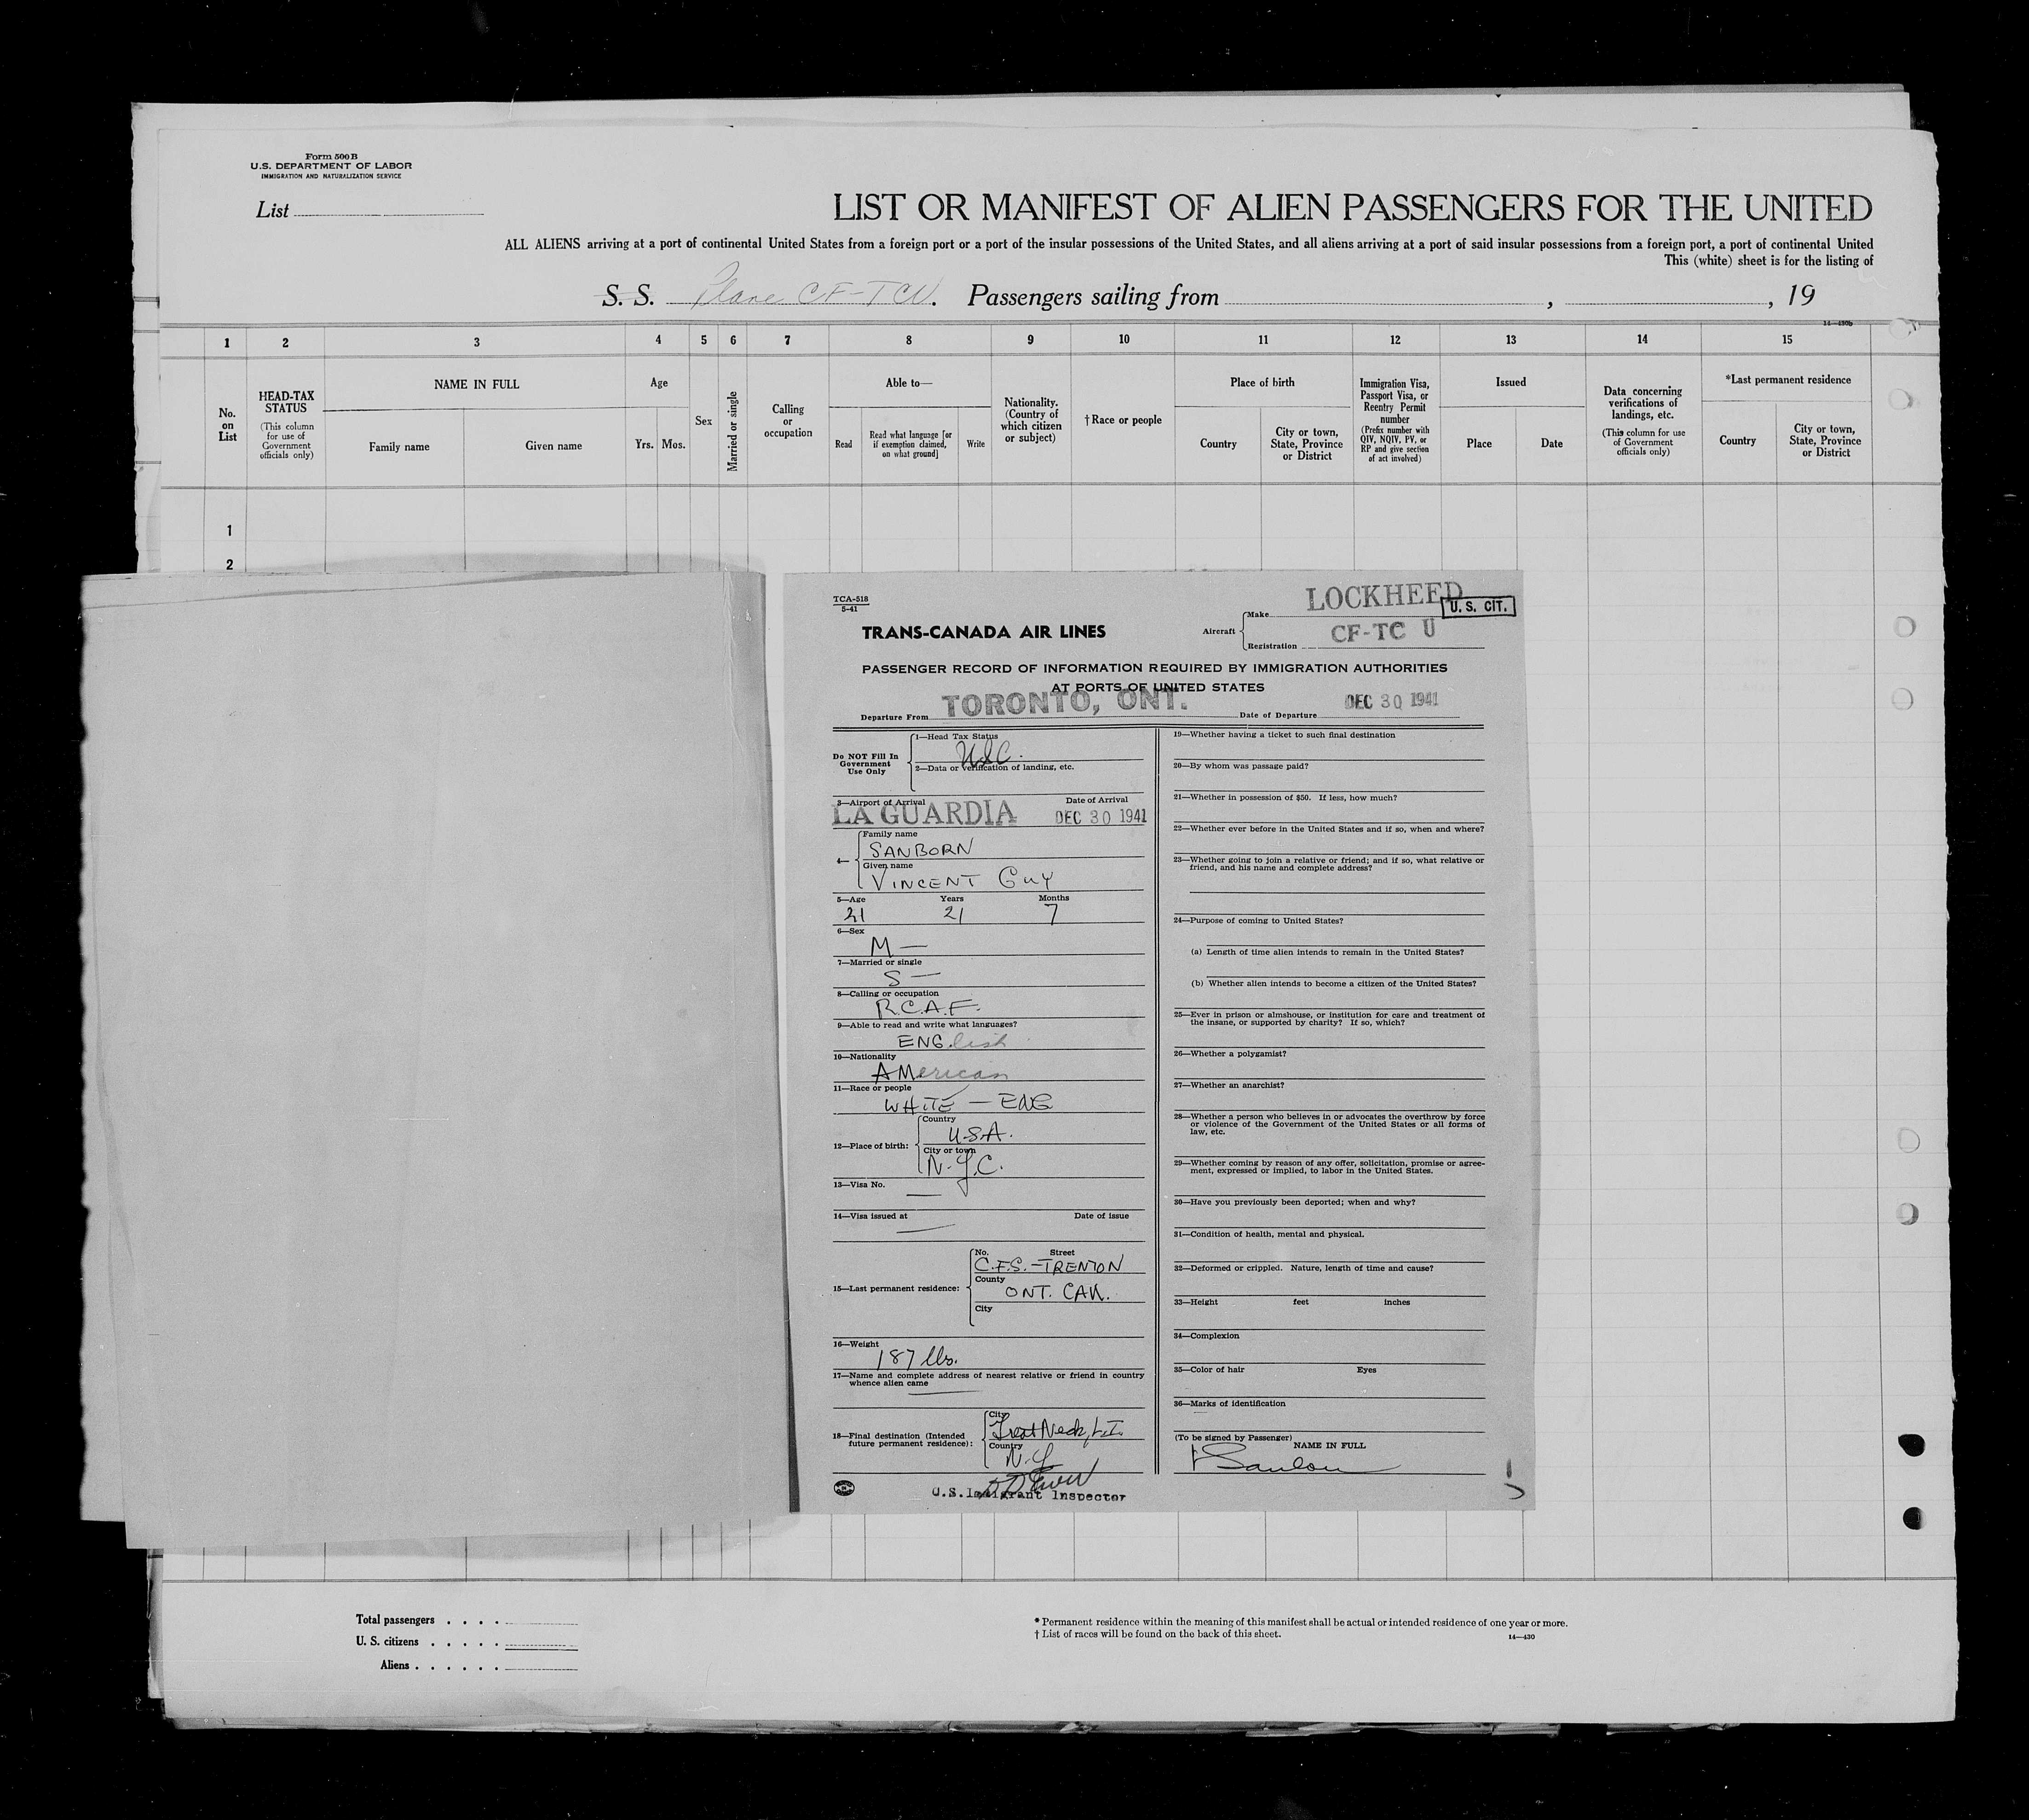 Form 500 B
U.S. DEPARTMENT OF LABOR
IMMIGRATION AND NATURALIZATION SERVICE
List
LIST OR MANIFEST OF ALIEN PASSENGERS FOR THE UNITED
ALL ALIENS arriving at a port of continental United States from a foreign port or a port of the insular possessions of the United States, and all aliens arriving at a port of said insular possessions from a foreign port, a port of continental United
This (white) sheet is for the listing of
S. S. Plane CF-TCU. Passengers sailing from , , 19
14—430b
1 2 3 4 5 6 7 8 9 10 11 12 13 14 15
No. on List
HEAD-TAX STATUS
(This column for use of Government officials only)
NAME IN FULL
Family name Given name
Age
Yrs. Mos.
Sex
Married or single
Calling or occupation
Able to—
Read
Read what language [or if exemption claimed, on what ground]
Write
Nationality. (Country of which citizen or subject)
† Race or people
Place of birth
Country
City or town, State, Province or District
Immigration Visa, Passport Visa, or Reentry Permit number
(Prefix number with QIV, NQIV, PV, or RP and give section of act involved)
Issued
Place Date
Data concerning verifications of landings, etc.
(This column for use of Government officials only)
*Last permanent residence
Country
City or town, State, Province or District
1
2
TCA-518
5-41
TRANS-CANADA AIR LINES
Aircraft
Make LOCKHEED
U. S. CIT.
Registration CF-TC U
PASSENGER RECORD OF INFORMATION REQUIRED BY IMMIGRATION AUTHORITIES
AT PORTS OF UNITED STATES
Departure From TORONTO, ONT. Date of Departure DEC 30 1941
Do NOT Fill In Government Use Only
1—Head Tax Status
USC.
2—Data or verification of landing, etc.
3—Airport of Arrival Date of Arrival
LA GUARDIA DEC 30 1941
4—
Family name
SANBORN
Given name
VINCENT GUY
5—Age Years Months
21 21 7
6—Sex
M —
7—Married or single
S —
8—Calling or occupation
R.C.A.F.
9—Able to read and write what languages?
ENGlish
10—Nationality
AMerican
11—Race or people
WHITE — ENG
12—Place of birth:
Country
U.S.A.
City or town
N.Y.C.
13—Visa No.
—
14—Visa issued at Date of issue
—
15—Last permanent residence:
No. Street
C.F.S. - TRENTON
County
ONT. CAN.
City
16—Weight
187 lbs.
17—Name and complete address of nearest relative or friend in country
whence alien came
—
18—Final destination (Intended
future permanent residence):
City
Great Neck, L.I.
Country
N.Y
U.S. Immigrant Inspector
19—Whether having a ticket to such final destination
20—By whom was passage paid?
21—Whether in possession of $50. If less, how much?
22—Whether ever before in the United States and if so, when and where?
23—Whether going to join a relative or friend; and if so, what relative or
friend, and his name and complete address?
24—Purpose of coming to United States?
(a) Length of time alien intends to remain in the United States?
(b) Whether alien intends to become a citizen of the United States?
25—Ever in prison or almshouse, or institution for care and treatment of
the insane, or supported by charity? If so, which?
26—Whether a polygamist?
27—Whether an anarchist?
28—Whether a person who believes in or advocates the overthrow by force
or violence of the Government of the United States or all forms of
law, etc.
29—Whether coming by reason of any offer, solicitation, promise or agree-
ment, expressed or implied, to labor in the United States.
30—Have you previously been deported; when and why?
31—Condition of health, mental and physical.
32—Deformed or crippled. Nature, length of time and cause?
33—Height feet inches
34—Complexion
35—Color of hair Eyes
36—Marks of identification
(To be signed by Passenger)
NAME IN FULL
Total passengers
U. S. citizens
Aliens
* Permanent residence within the meaning of this manifest shall be actual or intended residence of one year or more.
† List of races will be found on the back of this sheet.
14—430